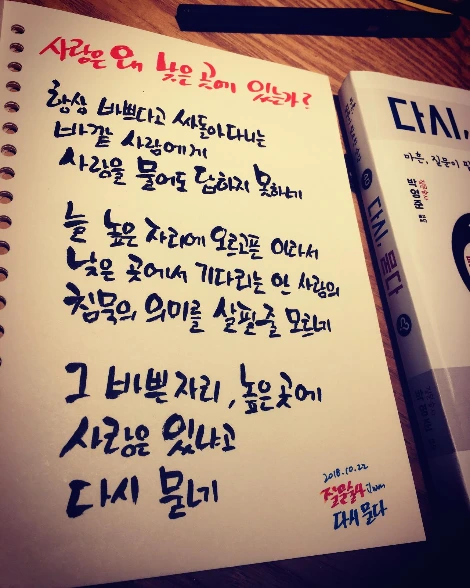 사랑은 왜 낮은 곳에 있는가?
항상 바쁘다고 싸돌아다니는
바깥 사람에게
사랑을 물어도 답하지 못하네
늘 높은 자리에 오르고픈 이라서
낮은 곳에서 기다리는 안 사람의
침묵의 의미를 살필줄 모르네
그 바쁜 자리, 높은곳에
사랑은 있냐고
다시 묻네
2018.10.22
질문술사
다시 묻다
다시,
마흔, 질문이
박영준
다시, 묻다